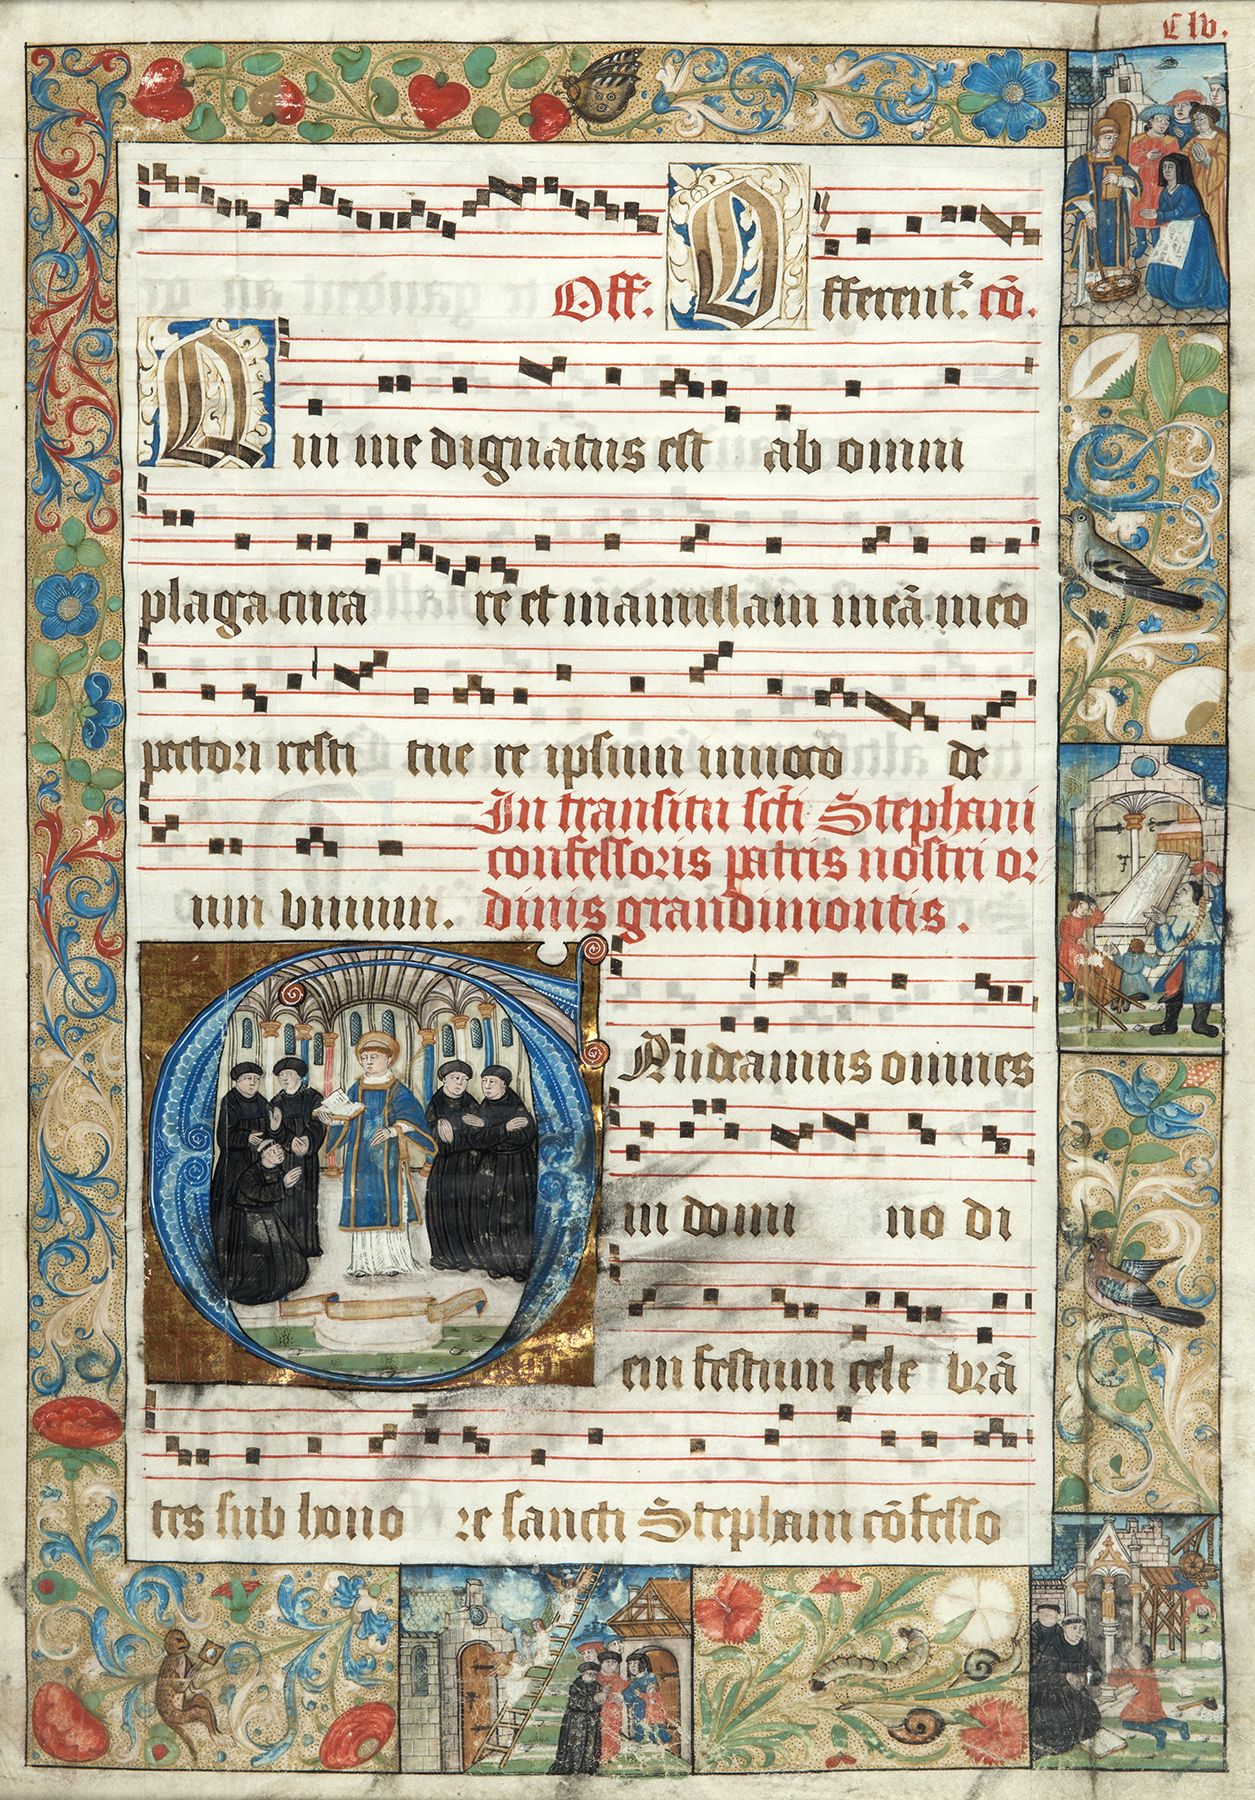 Clv.
Off: Offerent.ᷣ cō.
Qui me dignatus est ab omni
plaga cura re et mamillam meā meo
pectori resti tue re ipsum inuoco de
um viuum. In transitu scti Stephani
confessoris patris nostri or
dinis grandimontis.
Gaudeamus omnes
in domi no di
em festum cele brā
tes sub hono re sancti Stephani cōfesso